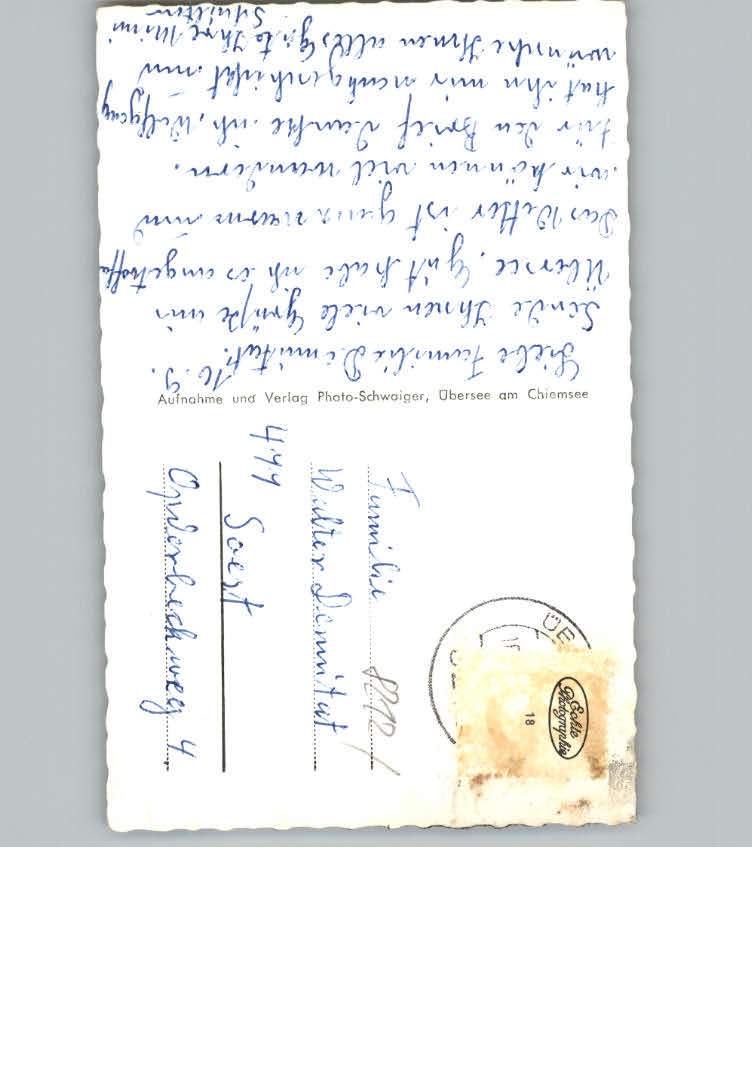 16.9.
Liebe Familie Demitat!
Sende Ihnen viele Grüße aus
Übersee. Gut habe ich es angetroffen
Das Wetter ist ganz warm und
wir können viel wandern.
Für den Brief danke ich, Wolfgang
hat ihn mir nachgeschickt und
wünsche Ihnen alles Gute Ihre Mimi
Aufnahme und Verlag Photo-Schwaiger, Übersee am Chiemsee
Familie
Walter Demitat
477 Soest
Opderbeckweg 4
ÜBE
Echte
Photographie
18